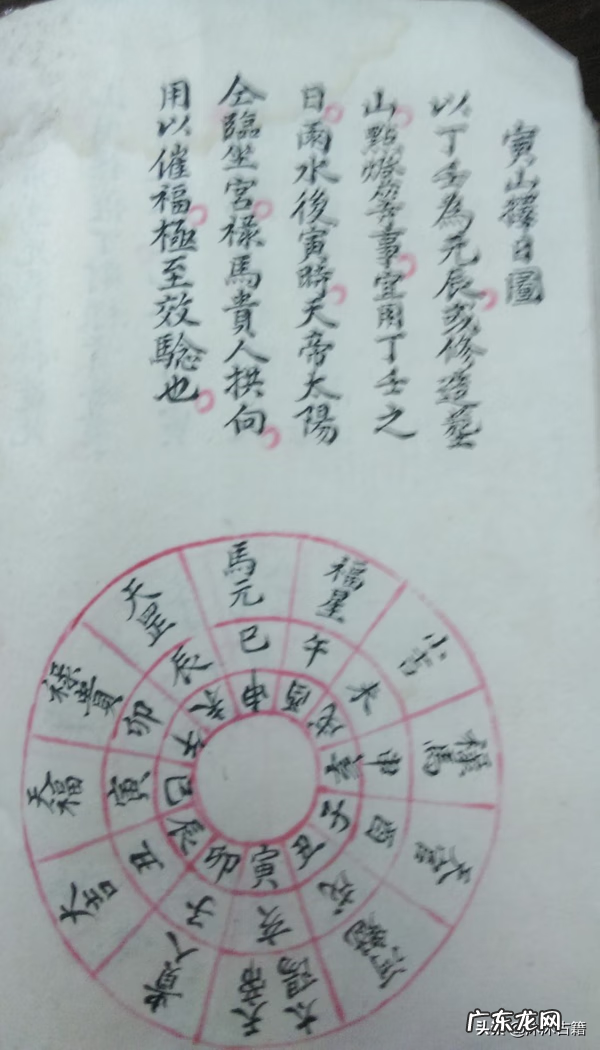 寅山擇日圖
以丁壬為元辰。或修造塟
山。點燈等事。宜用丁壬之
日。雨水後寅時。天帝太陽
仝臨坐宮。祿馬貴人拱向。
用以催福。極至效驗也。
馬元
福星
小吉
祿馬
天罡
祿貴
天福
大吉
貴人
天帝太陽
巳
午
未
申
酉
戌
亥
子
丑
寅
卯
辰
申
酉
戌
亥
子
丑
寅
卯
辰
巳
午
未
广东龙网
头条
古籍